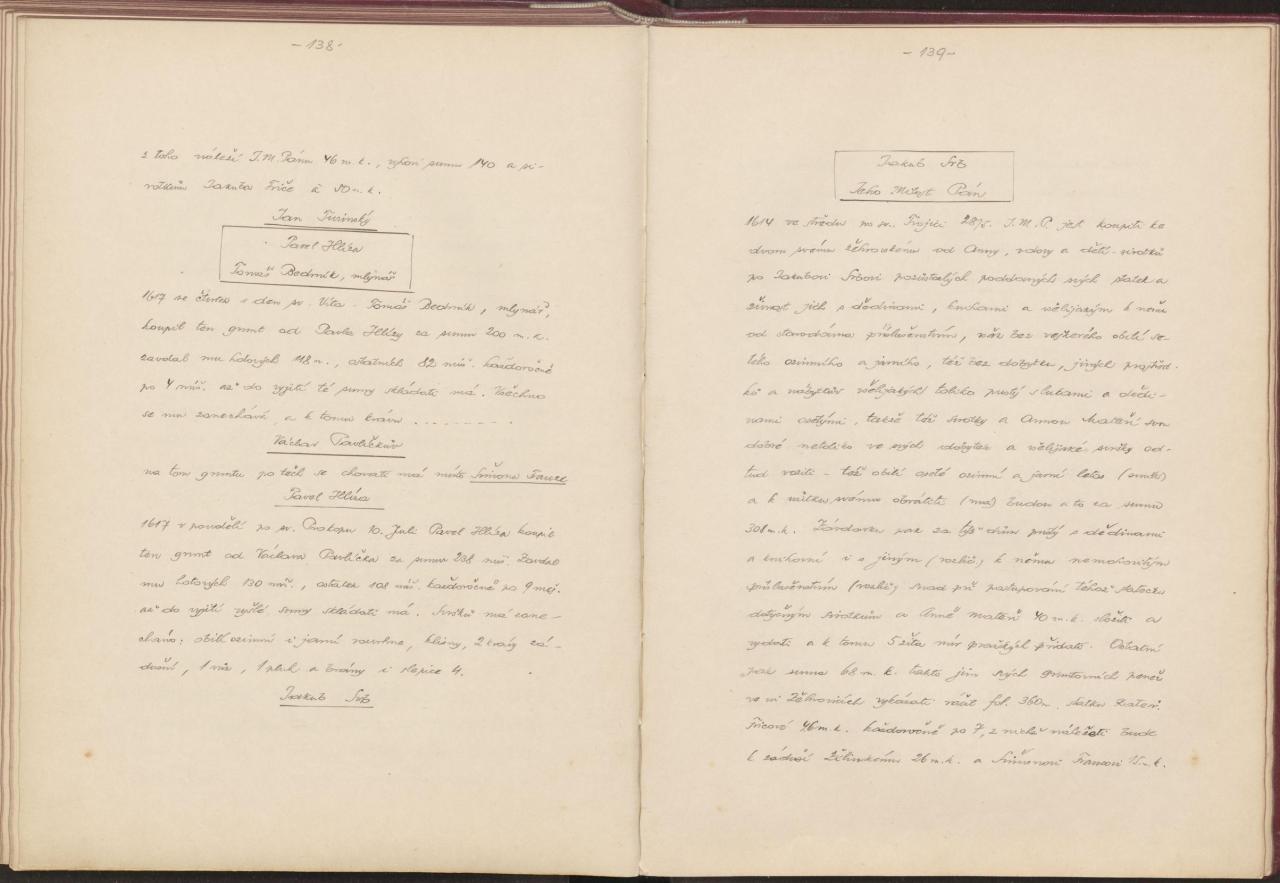 - 138 -
z toho náleží J.M.Pánu 46 m.k., vyšší summu 140 a si-
rotkům Jakuba Friče à 50 m.k.
Jan Turinský
Pavel Hlíza
Tomáš Bednřík, mlýnář
1617 ve čtvrtek s den sv. Víta - Tomáš Bednřík, mlynář,
koupil ten grunt od Pavla Hlízy za summu 200 m.k.
zavdal mu hotových 118 m., ostatních 82 míš. každoročně
po 4 míš. až do vyjití té sumy skládati má. Všechno
se mu zanechává, a k tomu krávu . . . . . . . .
Václav Pavlíčkův
na tom gruntu po těch se chovati má místo Šimona France
Pavel Hlíza
1617 v pondělí po sv. Prokopu 10. Juli Pavel Hlíza koupil
ten grunt od Václava Pavlíčka za summu 238 míš. Zavdal
mu hotových 130 míš., ostatek 108 míš. každoročně po 9 míš.
až do vyjití vyšší sumy skládati má. Svršků má zane-
cháno: obilí ozimní i jarní na vrchu, klisny, 2 krávy zá-
dušní, 1 vůz, 1 pluh a brány i slepice 4.
Jakub Srb
- 139 -
Jakub Srb
Jeho Milost Pán
1614 ve středu po sv. Trojici 28/5. J.M.P. jest koupiti ke
dvoru svému žehrovskému od Anny, vdovy a dětí - sirotků
po Jakubovi Srbovi pozůstalých poddaných svých statek a
živnost jich s dědinami, lukami a všelijakým k němu
od starodávna příslušenstvím, však bez veškerého obilí se-
tého ozimního a jarního, též bez dobytku, jiných
a nábytků všelijakých toliko pustý s lukami a dědi-
nami osetými, takže též sirotky a Annou Mateří svou
dobré netoliko ve svých dobytek a všelijaké svršky od-
tud voziti - též obilí oseté ozimní a jarní letos
a k užitku svému obrátiti (moci) budou a to za summu
308 m.k. Závdavku pak za týž dům pustý s dědinami
a lukami i s jiným k němu nemohovitým
příslušenstvím hned při postupování téhož statečku
dotyčným sirotkům a Anně mateři 40 m.k. složiti a
vydati a k tomu 5 žita měr pražských přidati. Ostatní
pak summu 68 m.k. takto jim svých gruntovních peněz
ve vsi Žehrovicích vykázati ráčil fol. 360 n. statku
Fricově 46 m.k. každoročně po 7, z nichž náležeti bude
k záduší Žilinskému 26 m.k. a Šimonovi Francovi 15 m.k.